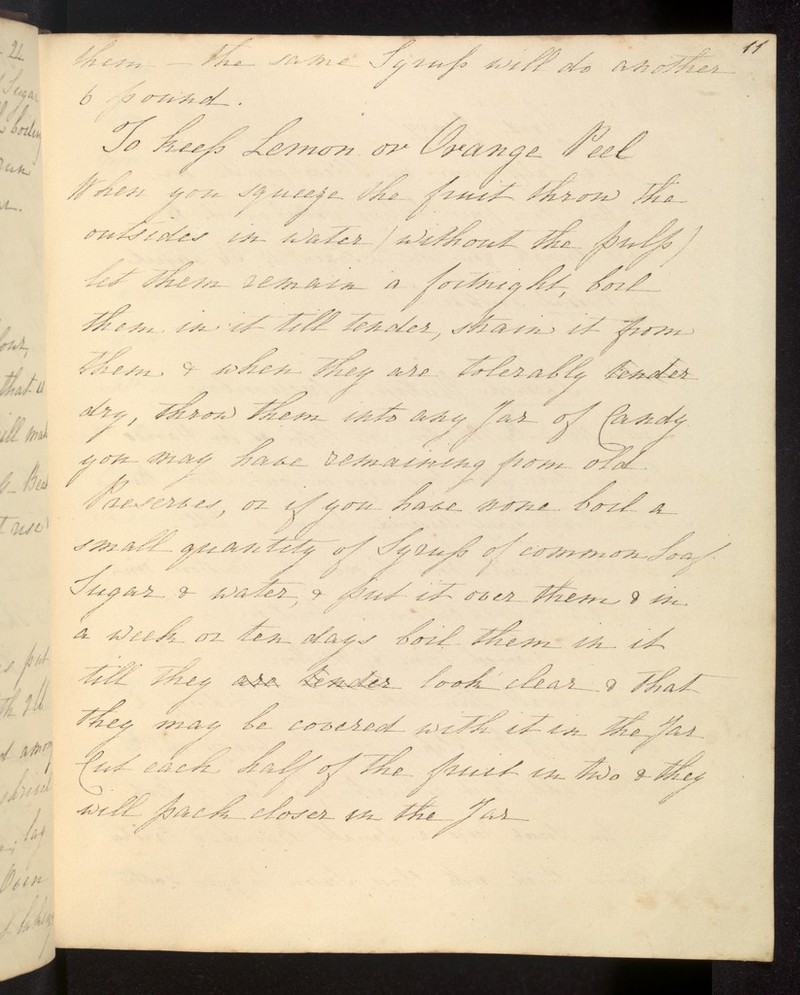 11
them - the same Syrup will do another
6 pound.
To keep Lemon or Orange Peel
When you squeeze the fruit throw the
outsides in water (without the pulp)
let them remain a fortnight, boil
them in it till tender, strain it from
them & when they are tolerably tender
dry, throw them into any Jar of Candy
you may have remaining from old
Preserves, or if you have none boil a
small quantity of Syrup of common Loaf
Sugar & water, & put it over them & in
a week or ten days boil them in it
till they are tender look clear & that
they may be covered with it in the Jar
Cut each half of the fruit in two & they
will pack closer in the Jar